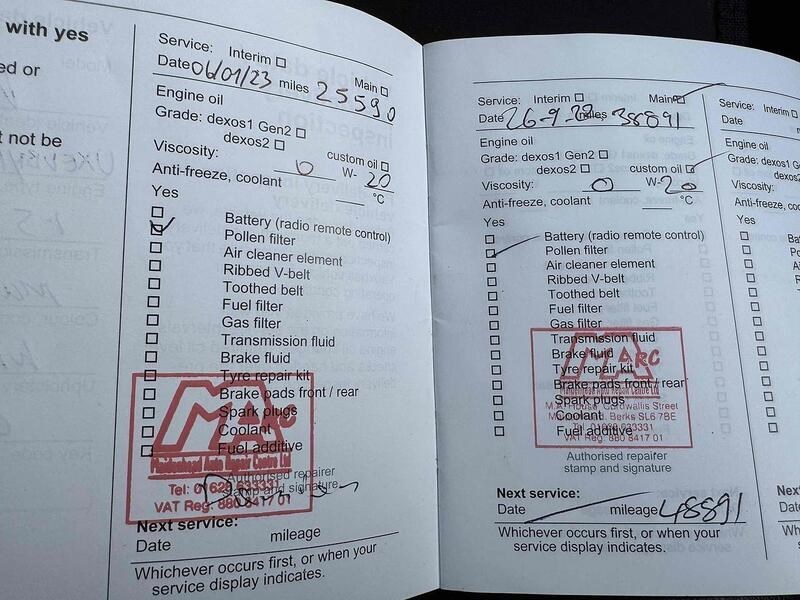 with yes
ed or
t not be
Service: Interim
Main
Date 06/01/23 miles 25590
Engine oil
Grade: dexos1 Gen2
dexos2
custom oil
Viscosity: 0 W- 20
Anti-freeze, coolant °C
Yes
Battery (radio remote control)
Pollen filter
Air cleaner element
Ribbed V-belt
Toothed belt
Fuel filter
Gas filter
Transmission fluid
Brake fluid
Tyre repair kit
Brake pads front / rear
Spark plugs
Coolant
Fuel additive
MARC
Maidenhead Auto Repair Centre Ltd
Authorised repairer
stamp and signature
Tel: 01628 633331
VAT Reg: 880 8417 01
Next service:
Date mileage
Whichever occurs first, or when your
service display indicates.
Service: Interim Main
Date 26-9- miles 38891
Engine oil
Grade: dexos1 Gen2
dexos2 custom oil
Viscosity: 0 W- 20
Anti-freeze, coolant °C
Yes
Battery (radio remote control)
Pollen filter
Air cleaner element
Ribbed V-belt
Toothed belt
Fuel filter
Gas filter
Transmission fluid
Brake fluid
Tyre repair kit
Brake pads front / rear
Spark plugs
Coolant
Fuel additive
MARC
Maidenhead Auto Repair Centre Ltd
M.A. House Cordwallis Street
Berks SL6 7BE
Tel: 01628 633331
VAT Reg: 880 8417 01
Authorised repairer
stamp and signature
Next service:
Date mileage 48891
Whichever occurs first, or when your
service display indicates.
Service: Interim
Date
Engine oil
Grade: dexos1 Gen
dexos2
Viscosity:
Anti-freeze, coola
Yes
Ba
Po
Air
Ri
To
Next service:
Date
Whichever occ
service disp